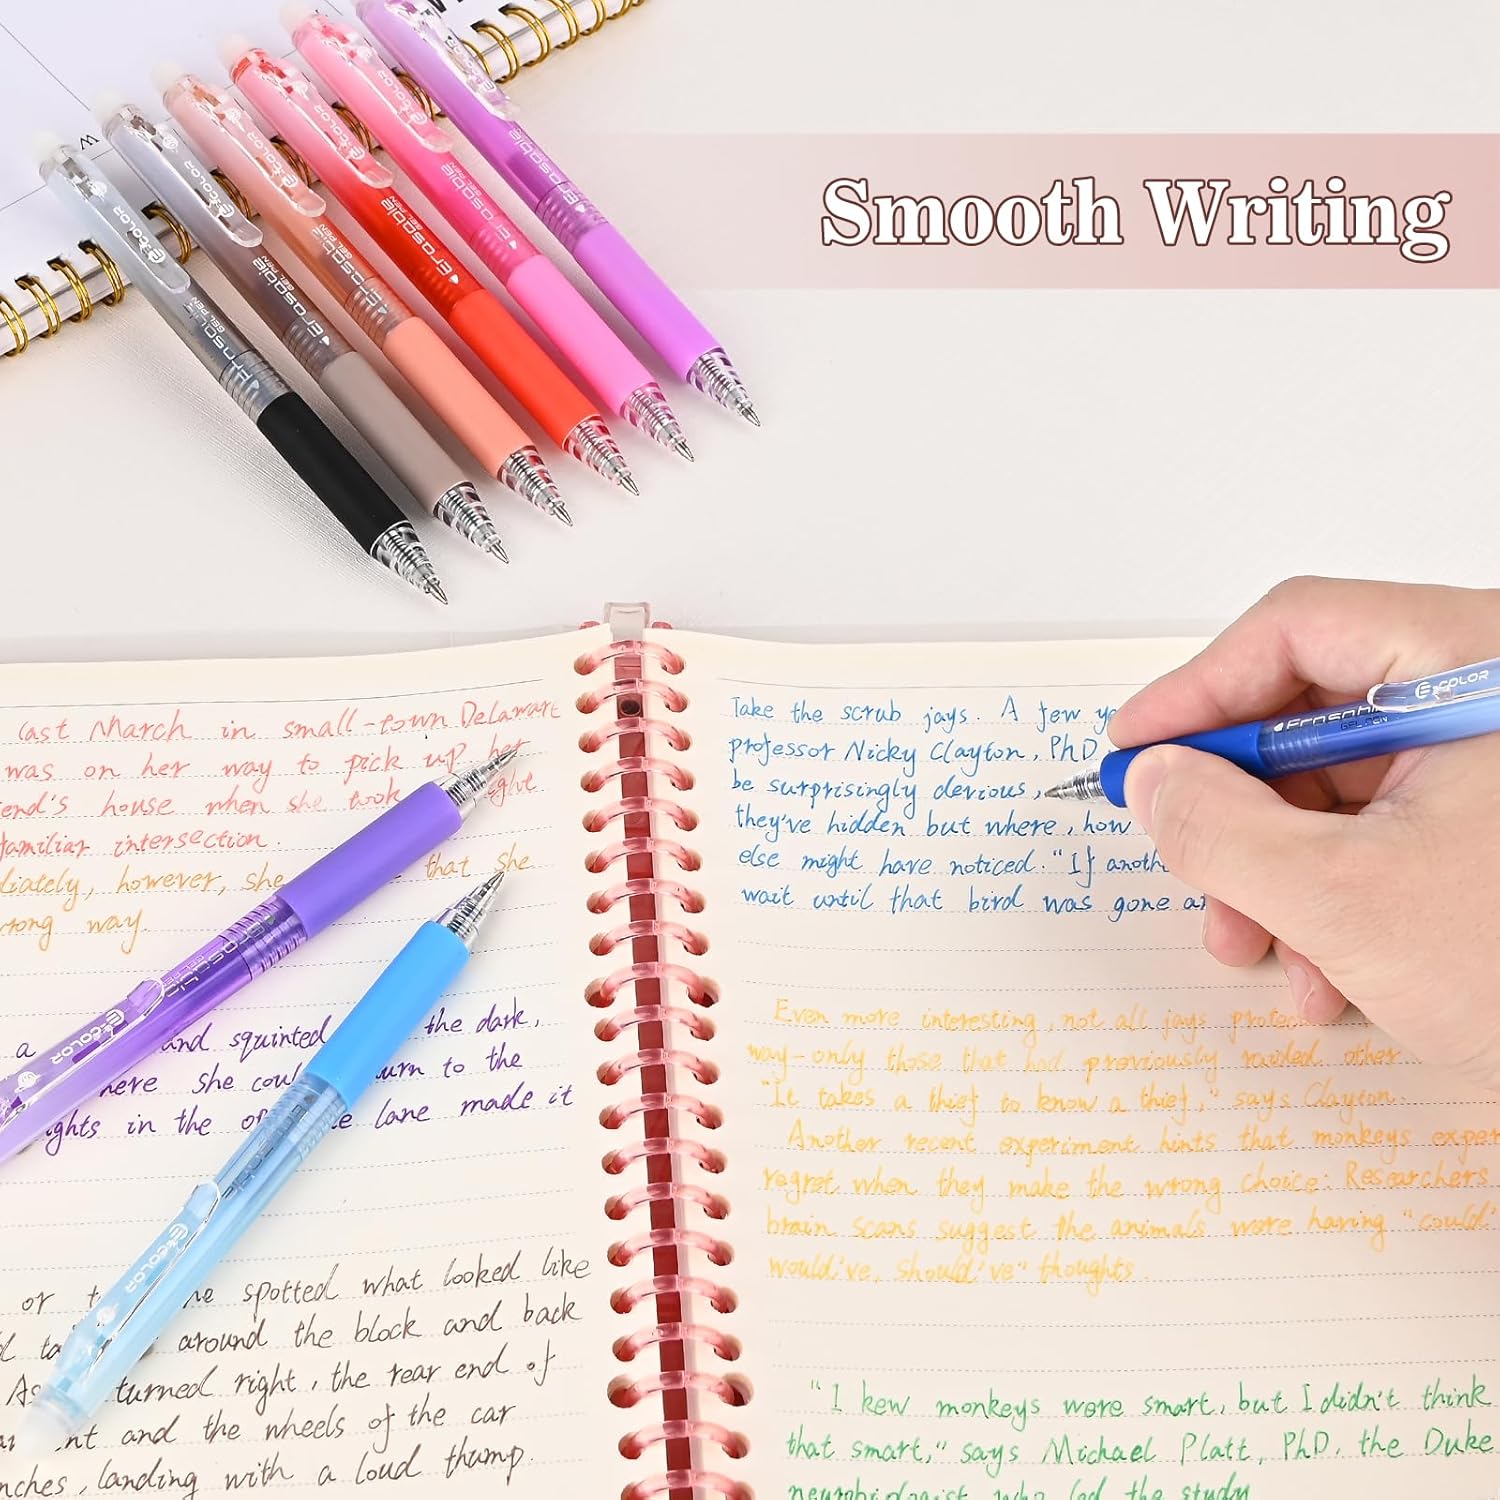 Smooth Writing
E COLOR
Erasable
GEL PEN
E COLOR
Erasable
GEL PEN
E COLOR
Erasable
GEL PEN
E COLOR
Erasable
GEL PEN
E COLOR
Erasable
GEL PEN
Erasable
GEL PEN
E COLOR
Erasable
GEL PEN
last March in small-town Delaware
was on her way to pick up her
end's house when she took
familiar intersection.
diately, however, she that she
wrong way.
a and squinted the dark,
here she coul urn to the
ghts in the of e lane made it
or t he spotted what looked like
d ta around the block and back
As turned right, the rear end of
nt and the wheels of the car
nches, landing with a loud thump.
E COLOR
E COLOR
Take the scrub jays. A few ye
professor Nicky Clayton, PhD
be surprisingly devious,
they've hidden but where, how
else might have noticed. "If anoth
wait until that bird was gone an
Even more interesting, not all jays protec
way-only those that had previously raided other
"It takes a thief to know a thief," says Clayton.
Another recent experiment hints that monkeys exper
regret when they make the wrong choice: Researchers
brain scans suggest the animals were having "could'
would've, should've" thoughts
"I kew monkeys were smart, but I didn't think
that smart," says Michael Platt, PhD. the Duke
neurobiologist who led the study